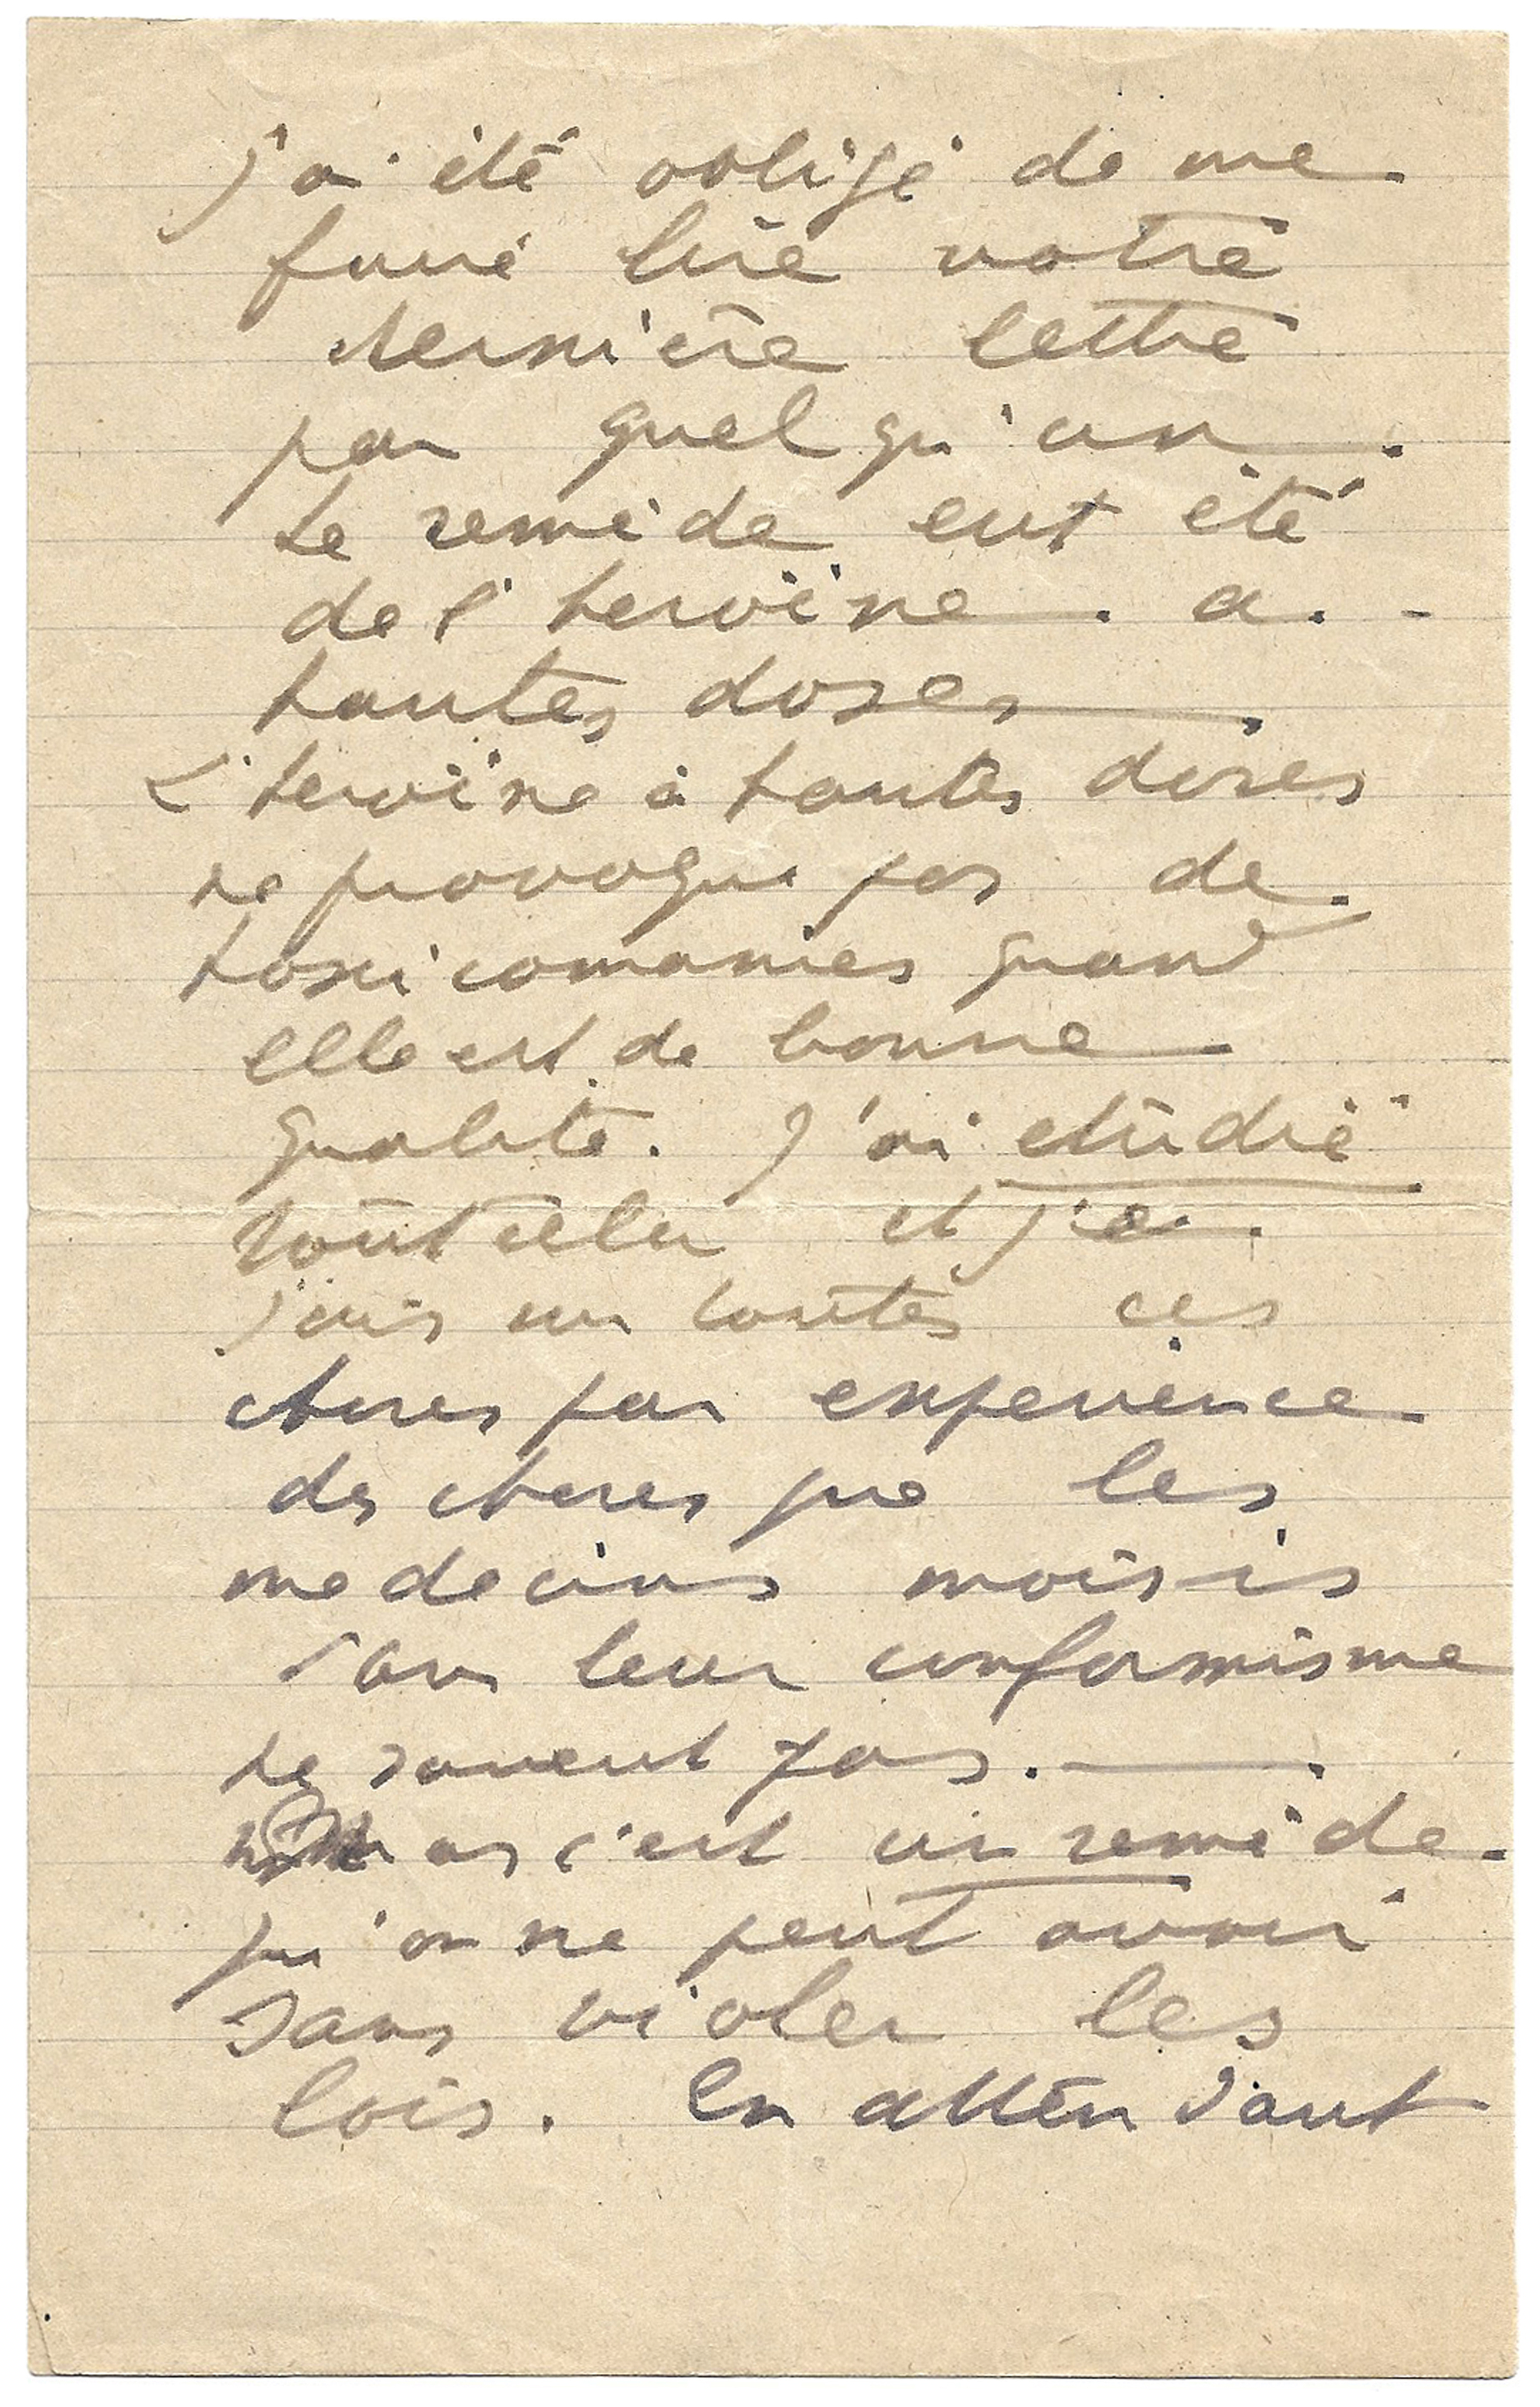 J'ai été obligé de me
faire lire votre
dernière lettre
par quelqu'un.
Le remède eut été
de l'heroïne. a.
hautes doses.
L'heroïne à hautes doses
ne provoque pas de
toxicomanies quand
elle est de bonne
qualité. J'ai étudié
tout cela et je
suis sur toutes ces
choses par experience
des choses que les
medecins moisis
dans leur conformisme
ne savent pas.
c'est un remède
qu'on ne peut avoir
sans violer les
lois. En attendant